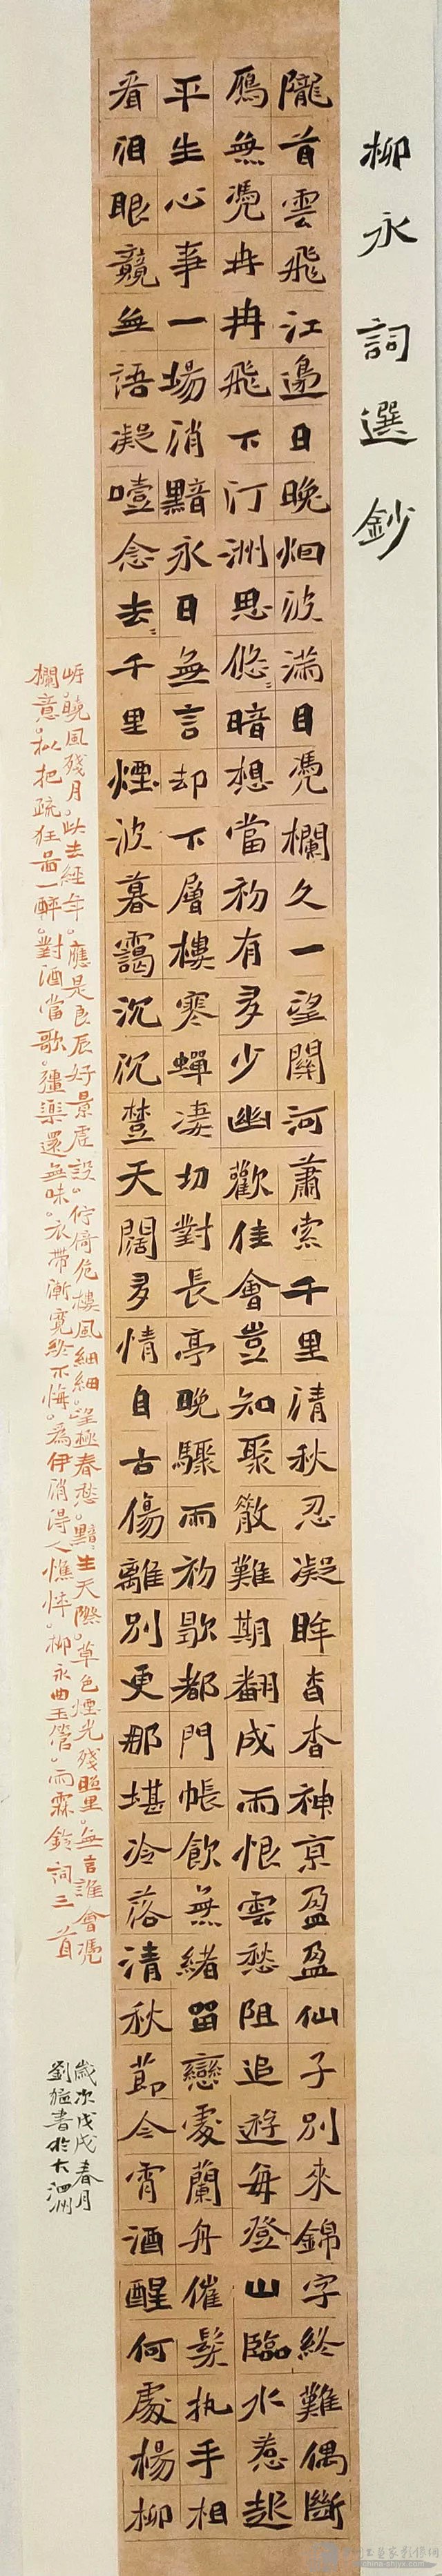 柳永詞選鈔
隴首雲飛江邊日晚烟波滿目憑欄久一望關河蕭索千里清秋忍凝眸杳杳神京盈盈仙子別來錦字終難偶斷
鴈無憑冉冉飛下汀洲思悠〻暗想當初有多少幽歡佳會豈知聚散難期翻成雨恨雲愁阻追遊每登山臨水惹起
平生心事一場消黯永日無言却下層樓寒蟬淒切對長亭晚驟雨初歇都門帳飲無緒留戀處蘭舟催髮执手相
看泪眼競無語凝噎念去〻千里煙波暮靄沉沉楚天闊多情自古傷離別更那堪冷落清秋節今宵酒醒何處楊柳
岸。曉風殘月。此去經年。應是良辰好景虛設。佇倚危樓風細細。望極春愁。黯〻生天際。草色煙光殘照里。無言誰會憑
欄意。拟把疏狂圖一醉。對酒當歌。彊樂還無味。衣帶漸寬終不悔。為伊消得人憔悴。柳永曲玉管。雨霖鈴詞三首
歲次戊戌春月
劉書於大泗洲